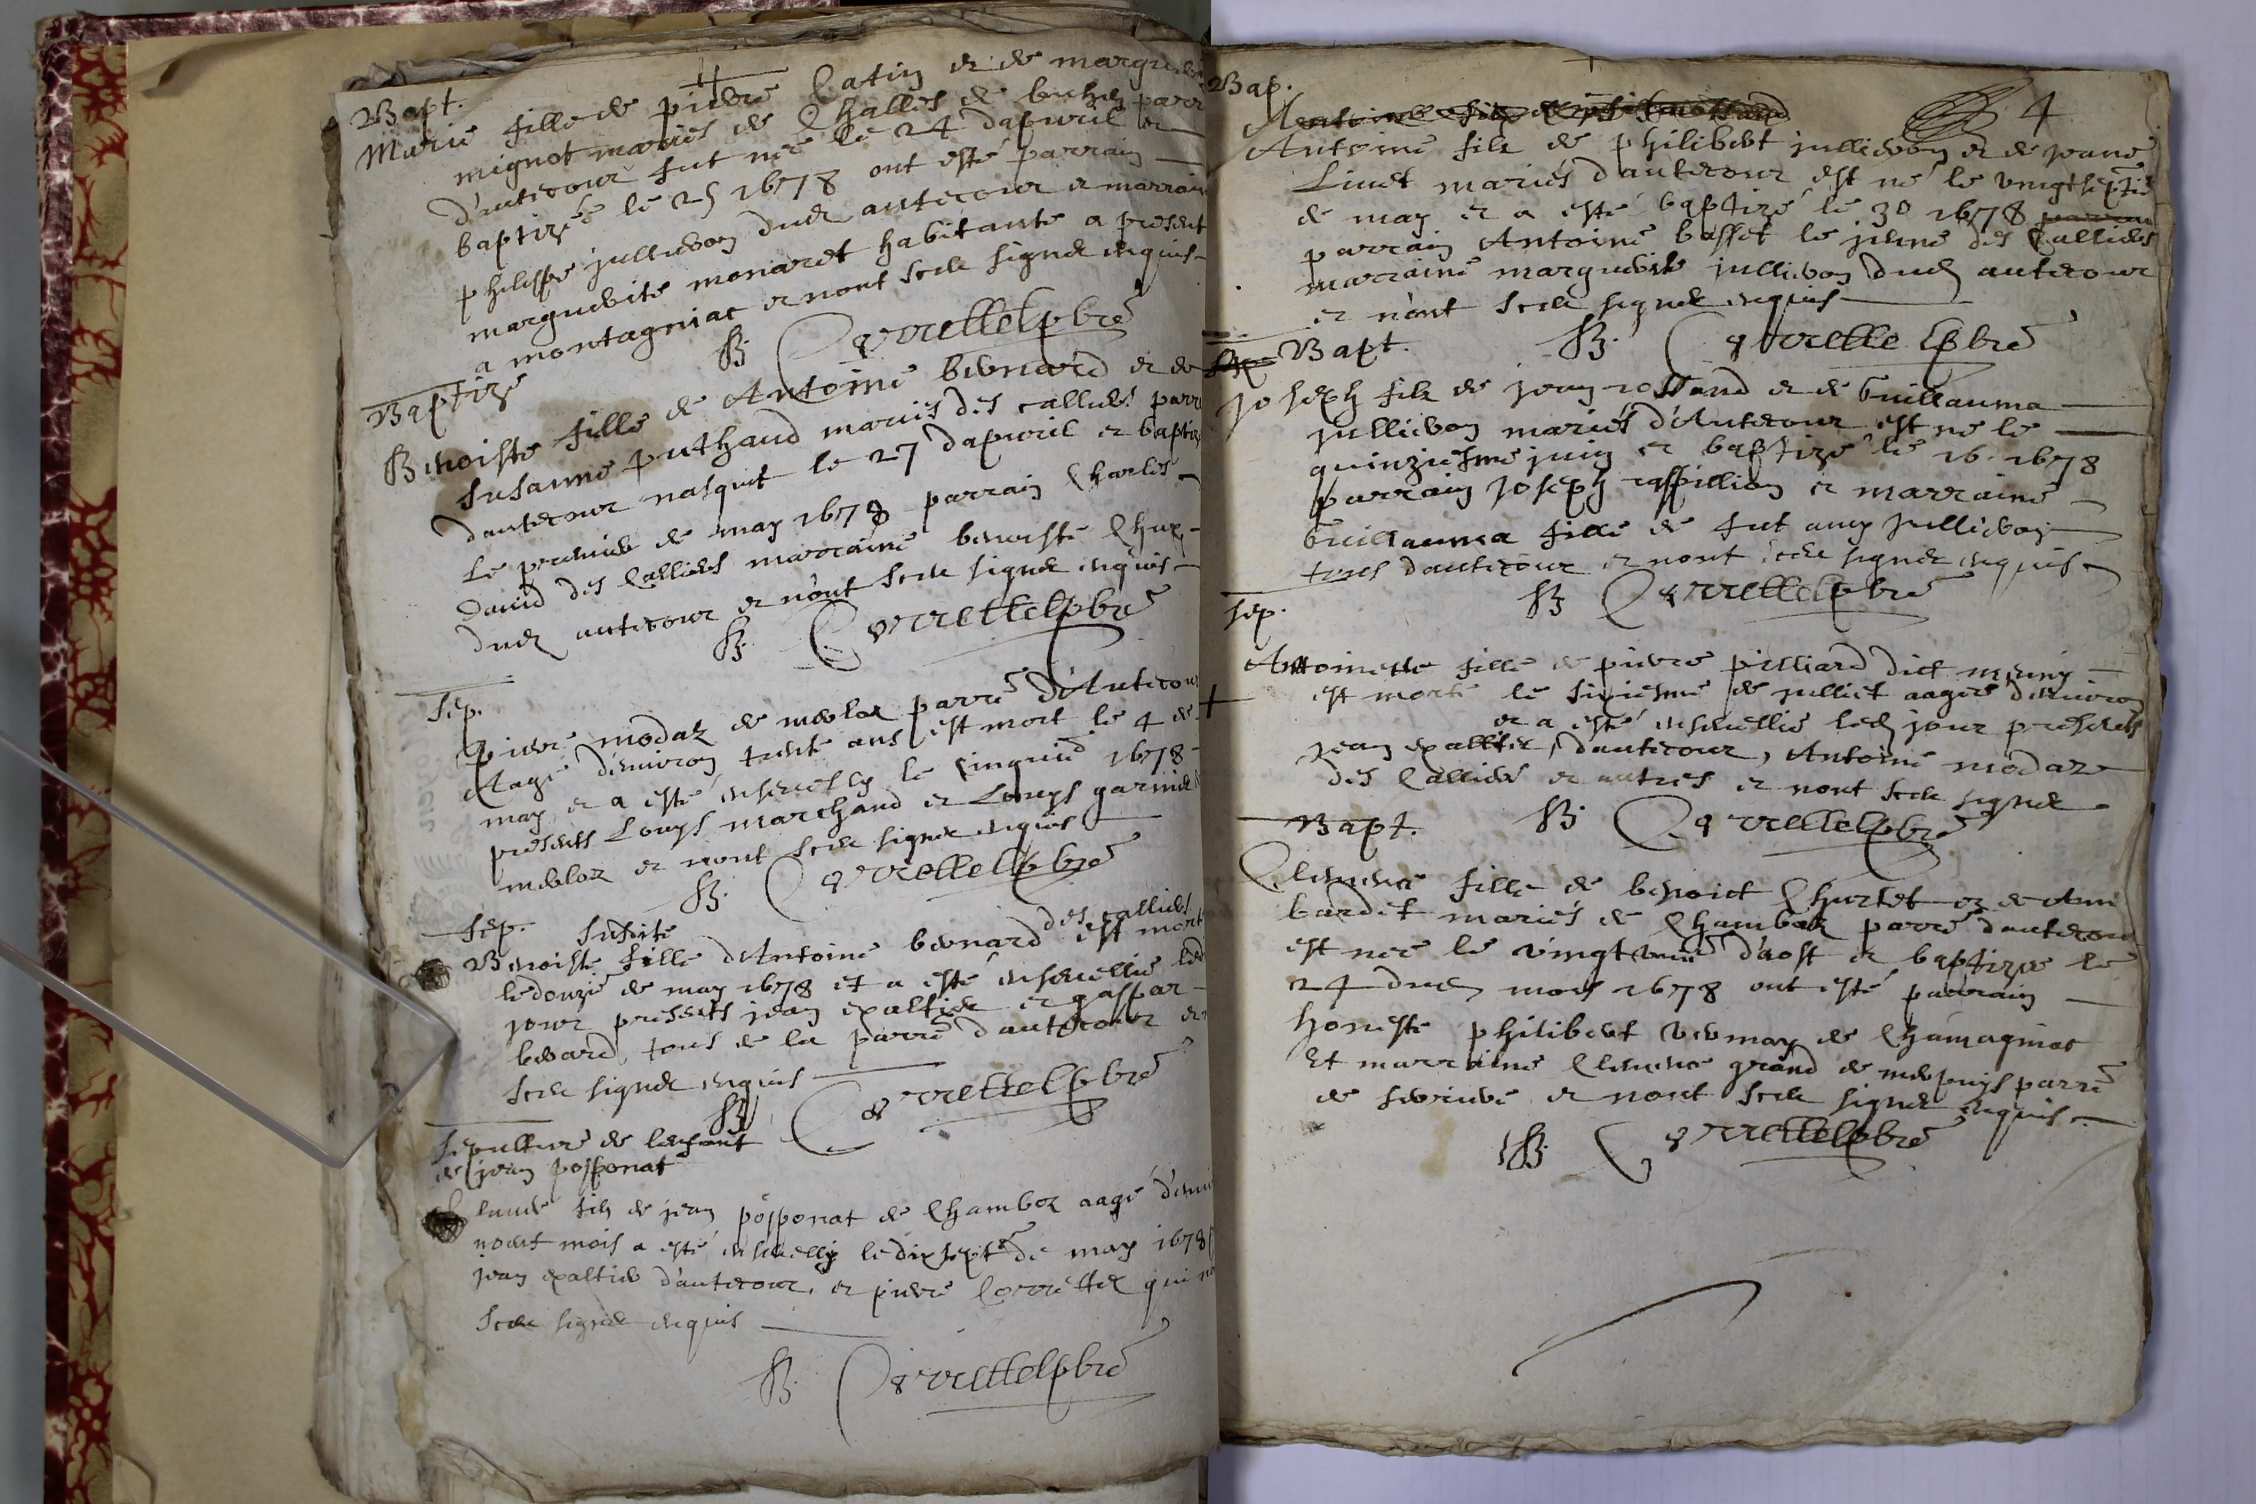 Bapt.
Marie fille de pierre Catin et de margueri
mignot mariés de Challes de buhen parr
d'antecour fut née le 24 dapvril et
baptizée le 25 1678 ont esté parrain
philippe jullieron dud antecour et marrain
marguerite monaret habitante a present
a montagniat et nont sceu signer enquis
B. Corrette pbre
Baptize
Benoiste fille de Antoine bernard et de
Susanne puthaud mariés des calliers parr
dantecour nasquit le 27 dapvril et baptiz
le premier de may 1678 parrain Charles
David des Calliers marraine benoiste
dud antecour et n'ont sceu signer enquis
B. Corrette pbre
Sep.
pierre modaz de merloz parre d'Antecou
Aagé d'environ trente ans est mort le 4 de
may et a esté ensevelly le cinquie 1678
presents Louys marchand et Louys garnier
merloz et nont sceu signer enquis
B. Corrette pbre
Sep. Susdite
Benoiste fille d'Antoine bernard des calliers est mort
le douzie de may 1678 et a esté ensevellie led
jour presents jean expaltier et gaspar
berard, tous de la parre d'antecour et
sceu signer enquis
B. Corrette pbre
Sepulture de lenfant
de jean posponat
Claude fils de jean posponat de Chamboz aagé d'envi
neuf mois a esté ensevelly le dixsept de may 1678
jean expaltier d'antecour, et pierre Correttez qui n
sceu signer enquis
B. Corrette pbre
Bap.
4
Antoine filz de philibert jullieron et de jeane
Livet mariés d'antecour est né le vingtseptie
de may et a esté baptizé le 30 1678
parrain Antoine basset le jeune des Calliers
marraine marguerite jullieron dud antecour
et n'ont sceu signer enquis
Bapt. B. Corrette pbre
Joseph filz de jean rolland et de Guillauma
jullieron mariés d'Antecour est né le
quinziesme juin et baptizé le 16 1678
parrain Joseph et marraine
Guillauma fille de fut Jullieron
tous dantecour et nont sceu signer enquis
B. Corrette pbre
Sep.
Antoinette fille de pierre pilliard dict
est morte le sixiesme de julliet aagee d'environ
et a esté ensevellie led jour presents
jean expaltier, d'antecour, Antoine modaz
des Calliers et autres et nont sceu signer
Bapt. B. Corrette pbre
Clemence fille de benoict Churlet et de
bardet mariés de Chamboz parre dantecour
est née le vingt d'aost et baptizee le
24 dud mois 1678 ont esté parrain
honeste philibert vernay de Chamagniat
Et marraine Clemence grand de parre
de et nont sceu signer enquis
B. Corrette pbre